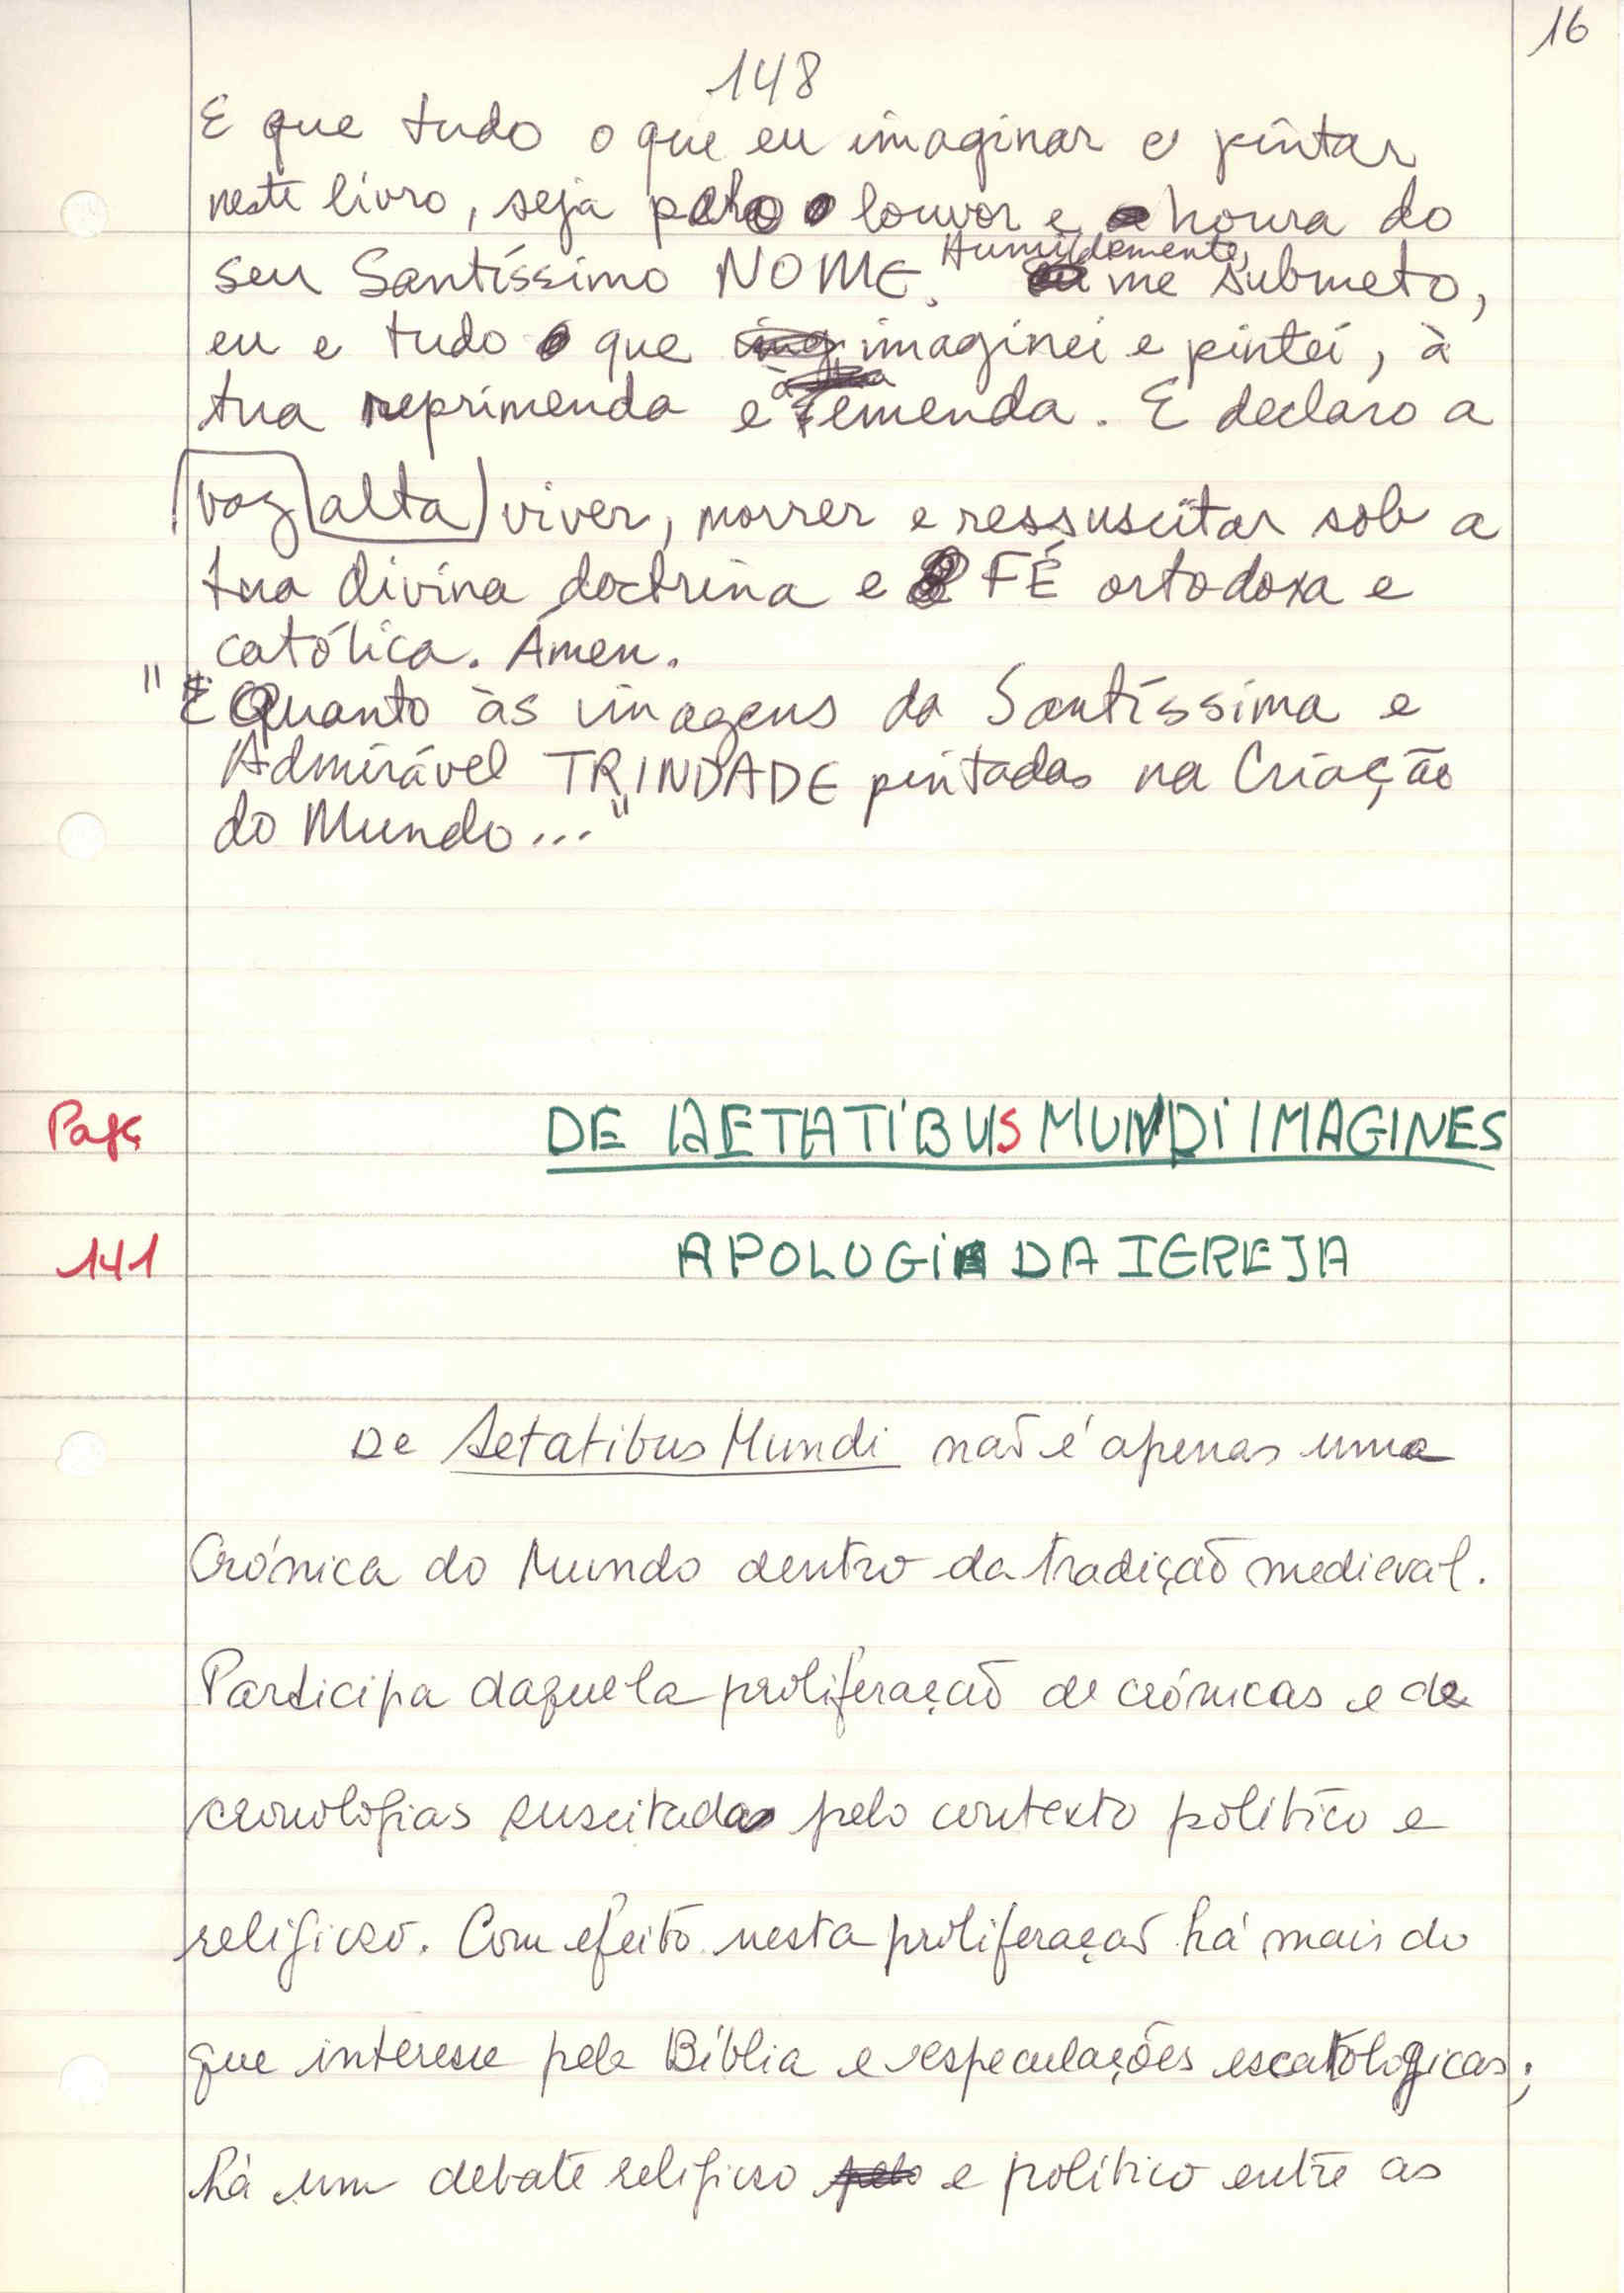 16
148
E que tudo o que eu imaginar e pintar
neste livro, seja para louvor e honra do
seu Santíssimo NOME. Humildemente, me submeto,
eu e tudo o que imaginei e pintei, à
tua reprimenda e à emenda. E declaro a
voz alta viver, morrer e ressuscitar sob a
tua divina doctrina e FÉ ortodoxa e
católica. Ámen.
" E Quanto às imagens da Santíssima e
Admirável TRINDADE pintadas na Criação
do Mundo..."
Pag
DE AETATIBUS MUNDI IMAGINES
141
APOLOGIA DA IGREJA
De Aetatibus Mundi não é apenas uma
Crónica do Mundo dentro da tradição medieval.
Participa daquela proliferação de crónicas e de
cronologias suscitadas pelo contexto político e
religioso. Com efeito nesta proliferação há mais do
que interesse pela Bíblia e especulações escatologicas;
há um debate religioso e político entre as